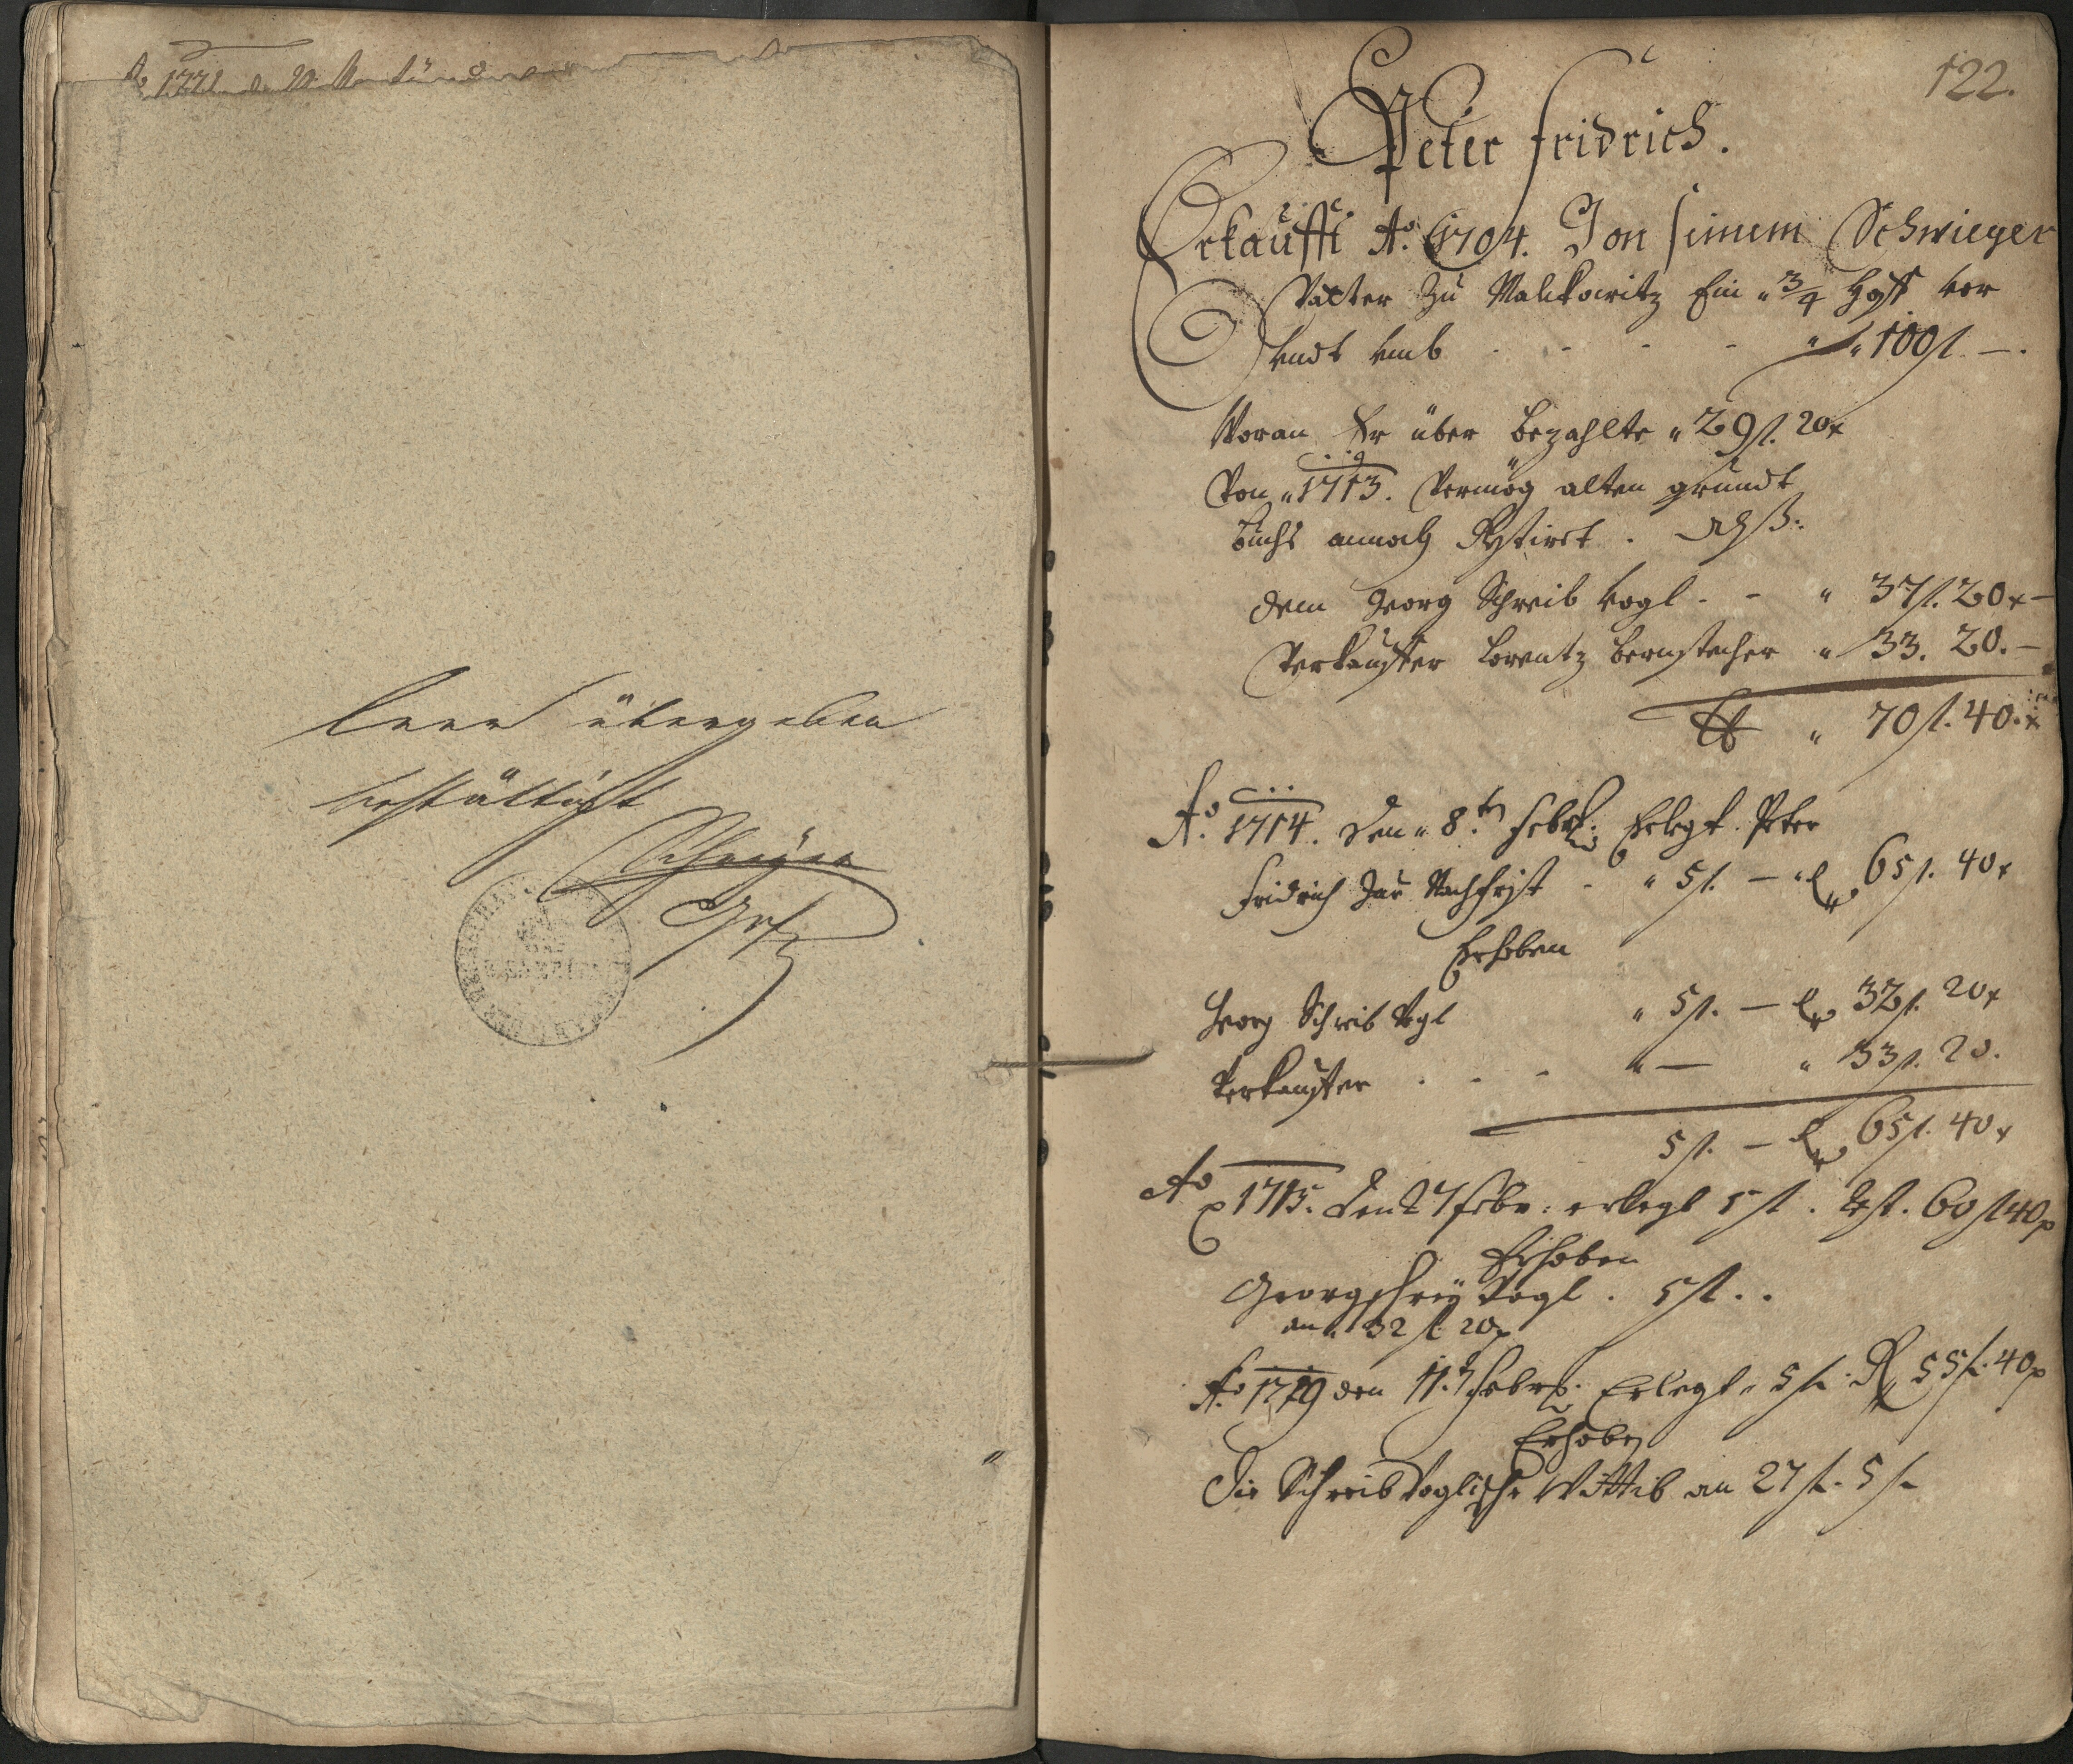 Ao 1771
leer übergeben
bestättigt
122.
Peter Fridrich.
Erkaufft Ao. 1704. Von seinem Schwieger
Vatter zu Malikowitz Ein " 3/4 Hoff vor
undt umb - - - - " " 100 fl. —.
Woran Er über bezahlte " 29 fl. 20 x
Von " 1713. Vermög alten grundt
buchs annoch Restiret . Als:
dem Georg Schreib Vogl - - " 37 fl. 20 x —
Verkauffer Lorentz Bernstecher " 33. 20. —
" 70 fl. 40. x
Ao. 1714. den " 8.ten Febr: Erlegt Peter
Fridrich zur Nachfrist - " 5 fl. — " 65 fl. 40 x
Erhoben
Georg Schreib Vogl " 5 fl. — 32 fl. 20 x
Verkauffer . - - " — " 33 fl. 20.
5 fl. — 65 fl. 40 x
Ao 1715. den 27 Febr: erlegt 5 fl. Rest. 60 fl 40 x
Erhoben
Georg Schreij Vogl . 5 fl. .
an " 32 fl. 20 x
Ao. 1719 den 11. Febr. Erlegt " 5 fl. R 55 fl. 40 x
Erhoben
Die Schreib Voglische Wittib an 27 fl. 5 fl.